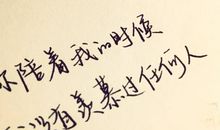 你陪着我的时候
没有羡慕过任何人